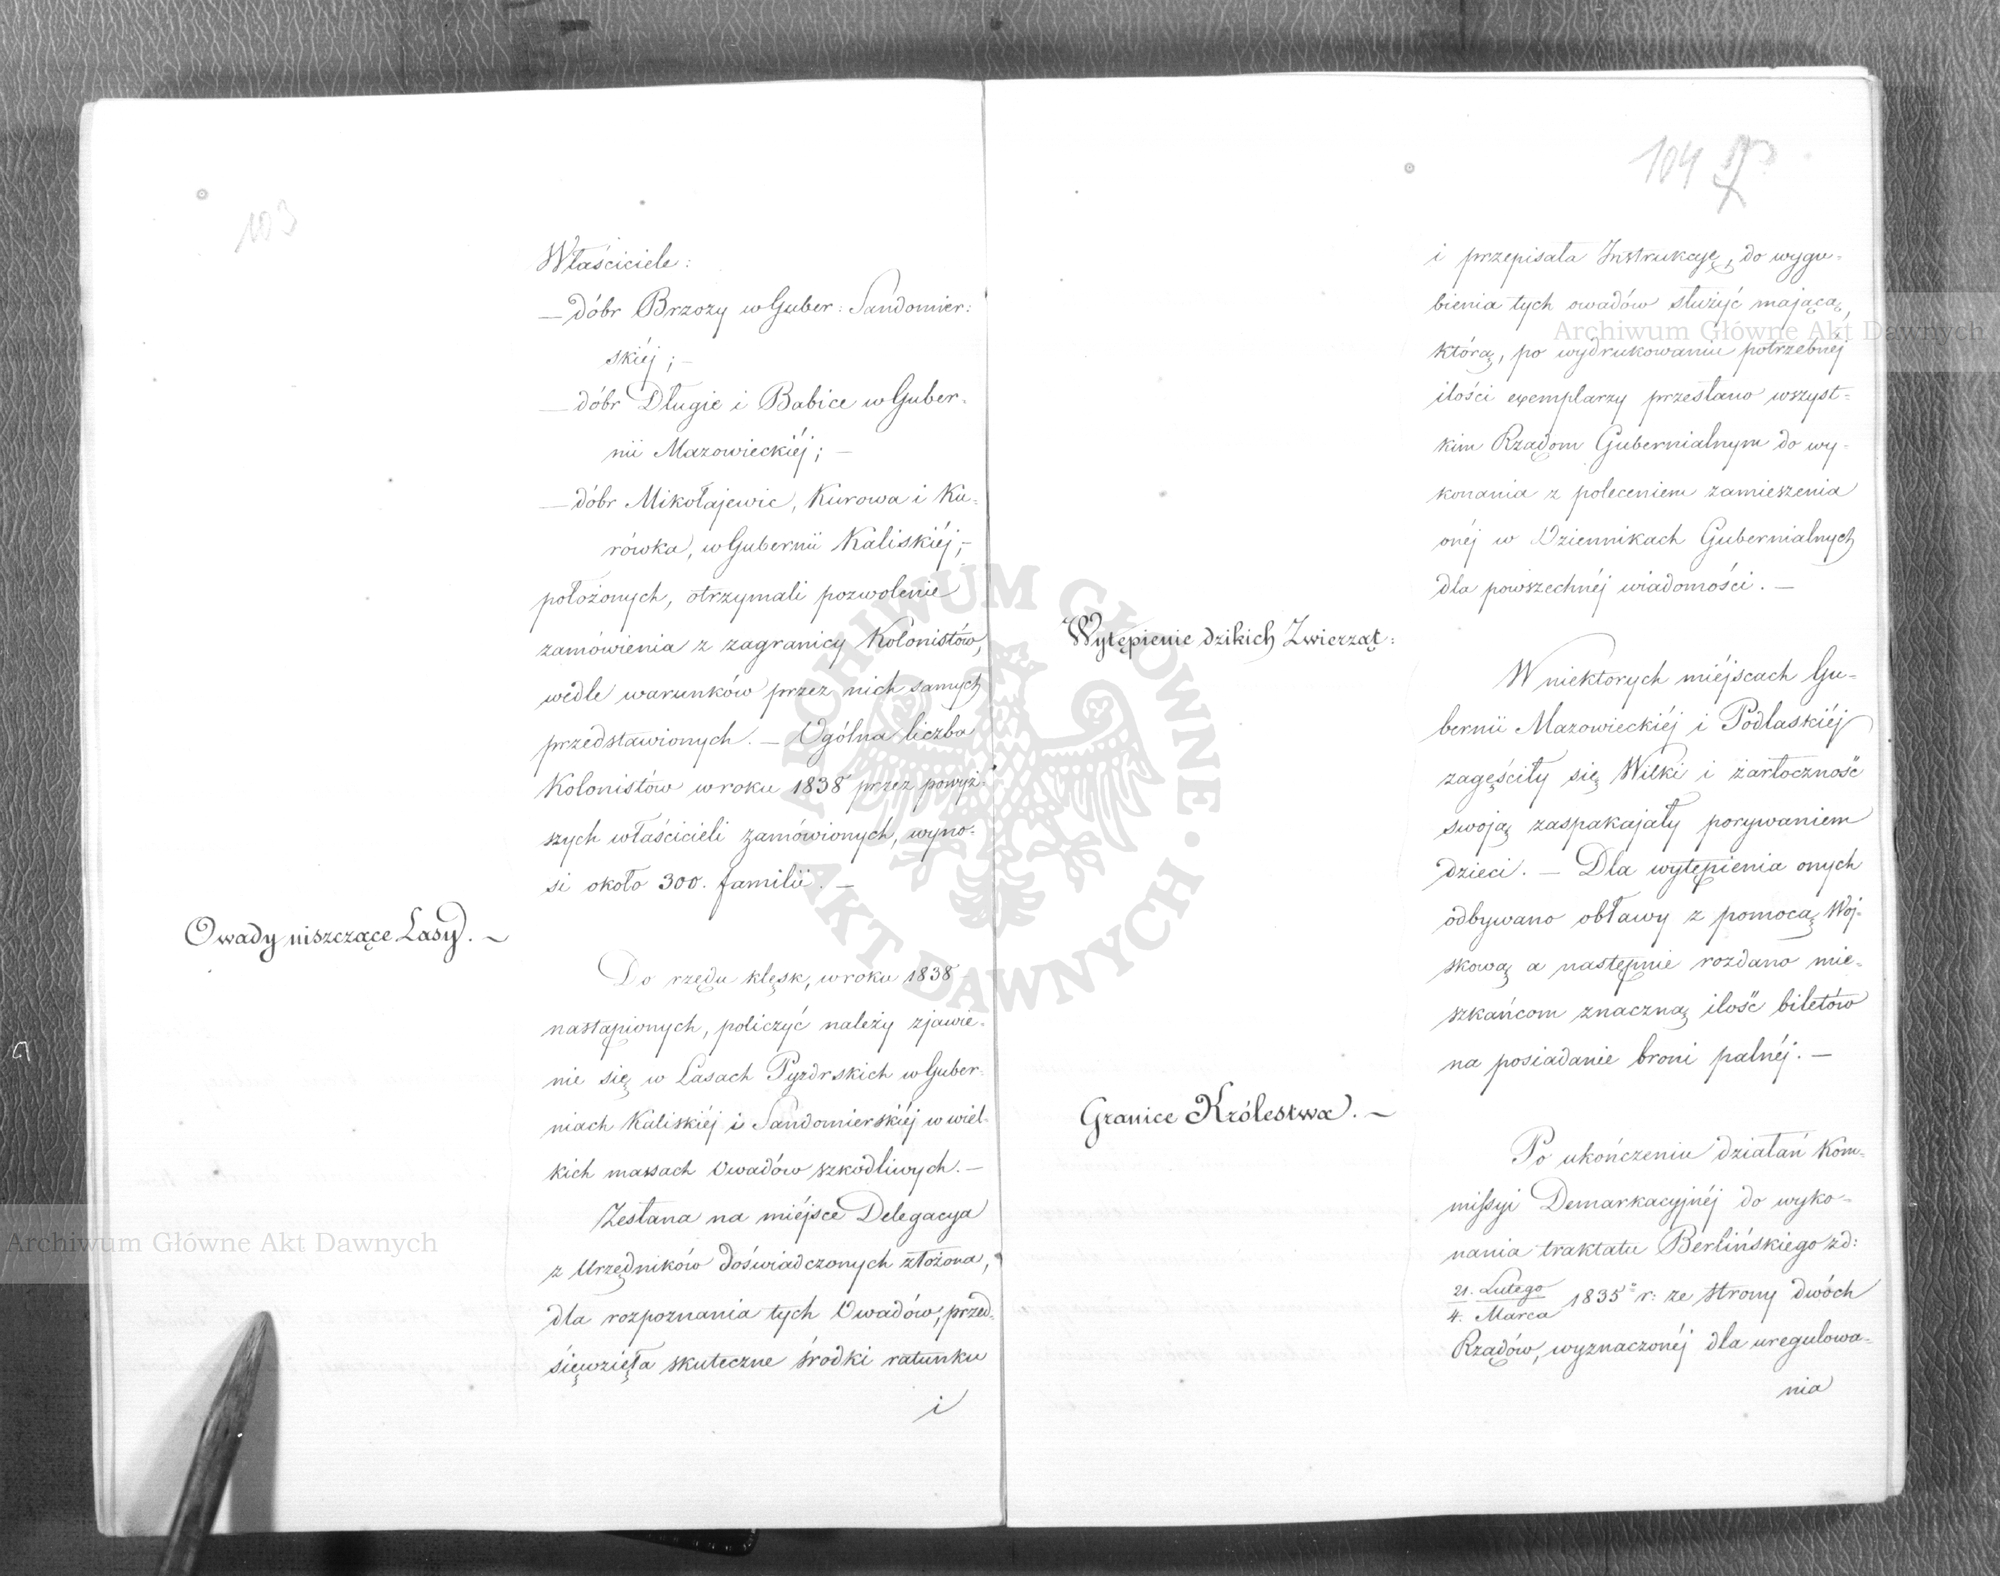 103
Właściciele:
— dóbr Brzozy w Guber: Sandomier:
skiéj; —
— dóbr Długie i Babice w Guber-
nii Mazowieckiéj; —
— dóbr Mikołajewic, Kurowa i Ku-
rówka, w Gubernii Kaliskiéj; —
położonych, otrzymali pozwolenie
zamówienia z zagranicy Kolonistów,
wedle warunków przez nich samych
przedstawionych. — Ogólna liczba
Kolonistów w roku 1838 przez powyż-
szych właścicieli zamówionych, wyno-
si około 300. familii. —
Owady niszczące Lasy. —
Do rzędu klęsk, w roku 1838
nastąpionych, policzyć należy zjawie-
nie się w Lasach Pyzdrskich w Guber-
niach Kaliskiéj i Sandomierskiéj w wiel-
kich massach Owadów szkodliwych. —
Zesłana na miéjsce Delegacya
z Urzędników doświadczonych złożona,
dla rozpoznania tych Owadów, przed-
sięwzięła skuteczne środki ratunku
i
104
i przepisała Instrukcyę, do wygu-
bienia tych owadów służyć mającą,
którą, po wydrukowaniu potrzebnéj
ilości exemplarzy przesłano wszyst-
kim Rządom Gubernialnym do wy-
konania z poleceniem zamieszenia
onéj w Dziennikach Gubernialnych
dla powszechnéj wiadomości. —
Wytępienie dzikich Zwierząt:
W niektorych miéjscach Gu-
bernii Mazowieckiéj i Podlaskiéj
zagęściły się Wilki i żarłoczność
swoją zaspakajały porywaniem
dzieci. — Dla wytępienia onych
odbywano obławy z pomocą Woj-
skową a następnie rozdano mie-
szkańcom znaczną ilość biletów
na posiadanie broni palnéj. —
Granice Królestwa. —
Po ukończeniu działań Kom-
missyi Demarkacyjnéj do wyko-
nania traktatu Berlińskiego z d:
21. Lutego
4. Marca 1835 r: ze strony dwóch
Rządów, wyznaczonéj dla uregulowa-
nia
Archiwum Główne Akt Dawnych
Archiwum Główne Akt Dawnych
ARCHIWUM GŁÓWNE · AKT DAWNYCH ·